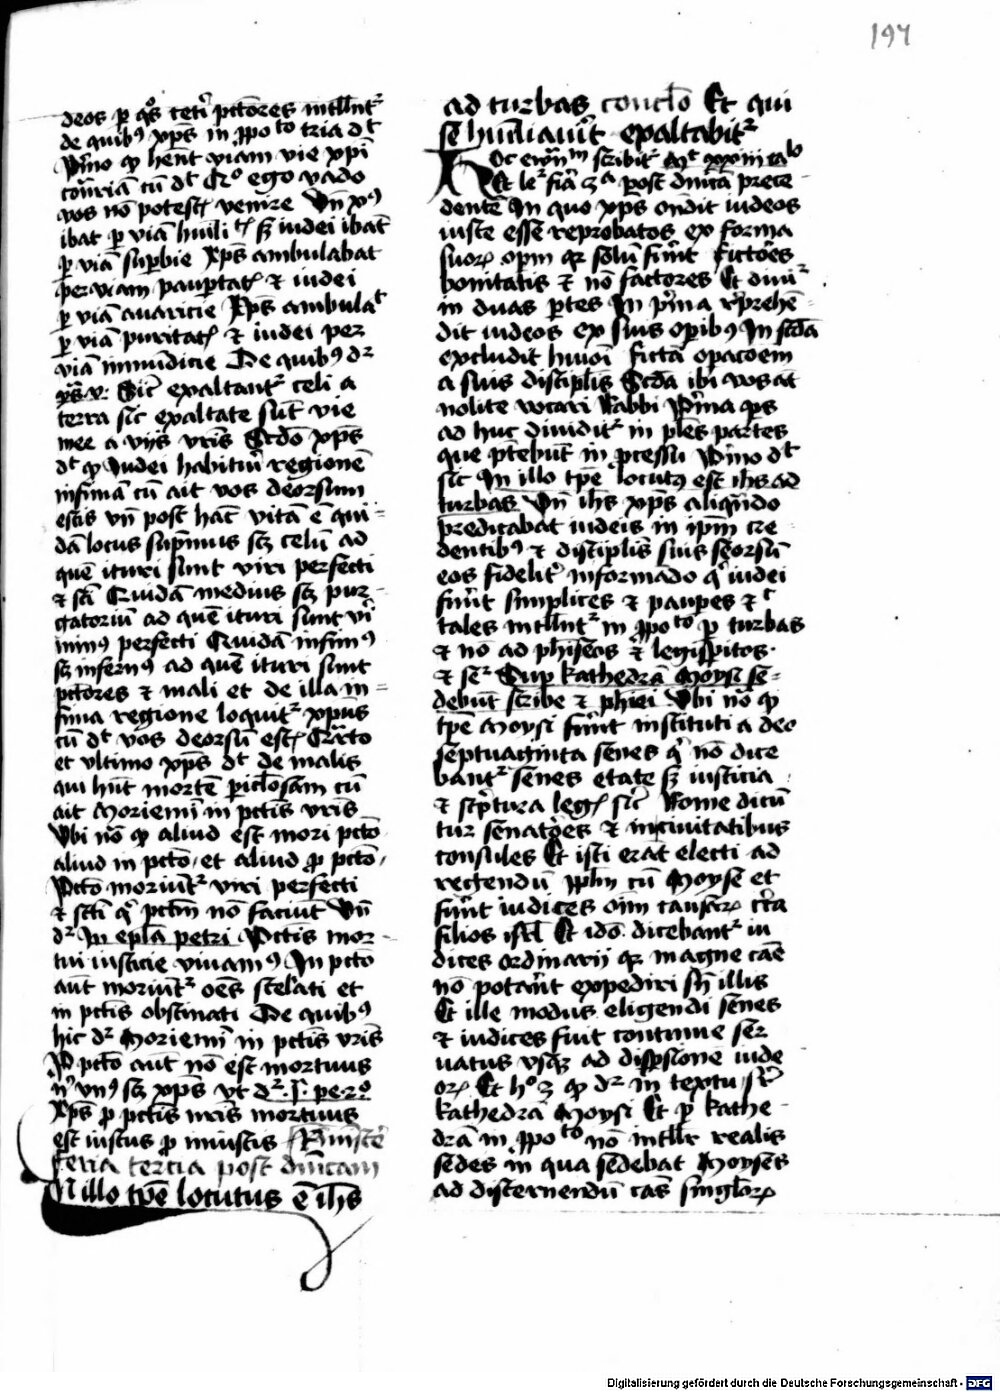 197
deos ꝑ q̄s ceti pctores intllnt᷑
de quibꝰ xp̄s in ꝓpoto tria dt
p̄mo ꝙ hent viam vie xp̄i
cont̄riā cū dt ego vado
vos nō potestꝭ venire Vn̄ xp̄ꝰ
ibat ꝑ viā humilitꝭ sꝫ iudei ibāt
ꝑ viā supbie Xp̄s ambulabat
per viam pauptatꝭ ⁊ iudei
ꝑ viā auaricie Xp̄s ambulat
ꝑ viā puritatꝭ ⁊ iudei per
viā inmūdicie De quibꝰ dr̄
Sic̄ exaltant᷑ celi a
terra sic exaltate sūt vie
mee a vijs vr̄is Scd̄o xp̄s
dt ꝙ Iudei habituri regionē
infimā cū ait vos deorsum
estis vn̄ post hāc vitā ē qui
dā locus sup̄mus scꝫ celū ad
quē ituri sunt viri perfecti
⁊ scī Quidā medius scꝫ pur
gatoriū ad quē ituri sunt vi
minꝰ perfecti Quidā infimꝰ
scꝫ infernꝰ ad quē ituri sunt
pctores ⁊ mali et de illa in
fima regione loquit᷑ xp̄us
cū dt vos deorsū estꝭ Qrāto
et vltimo xp̄s dt de malis
qui hūt mortē piclosam cū
ait Moriemī in pctis vr̄is
Vbi nō ꝙ aliud est mori pctō
aliud in pctō et aliud ꝓ pctō
Pctō moriūt᷑ viri perfecti
⁊ scti q̄ pctm̄ nō faciūt Vn̄
dr̄ In epl̄a petri Pctis mor
tui iusticie viuamꝰ In pctō
aūt moriūt᷑ oēs scelati et
in pctīs obstinati De quibꝰ
hic dr̄ Moriemī in pctis vr̄is
P pctō aūt nō est mortuus
nͥ vnꝰ scꝫ xp̄s vt dr̄ I pe 2o
Xp̄s ꝓ pctīs nr̄is mortuus
est iustus ꝓ iniustis
feria tertia post dn̄icam
In illo tp̄e locutus ē ih̄s
ad turbas concl̄o Et qui
se humiliauīt exaltabit᷑
Hoc ewn̄m scribit᷑ Mt xxiii calo
Et le᷑ fia 3a post dn̄icā prece
dentē In quo xp̄s on̄dit iudeos
iuste esse reprobatos ex forma
suoꝝ opm̄ qꝛ solū fūnt fictores
bonitatis ⁊ nō factores Et diui᷑
in duas ptes In p̄ma rep̄hē
dit iudeos ex suis opibꝰ In scd̄a
excludit huiōi fictā opacoem
a suis disciplīs Scd̄a ibi vos āt
nolite vocari Rabbi P̄ma ps
ad huc diuidit᷑ in pl̄es partes
que ptebūt in ꝓcessu P̄mo dt
sic In illo tp̄e locutꝰ est ih̄s ad
turbas Vn̄ ih̄s xp̄s aliqn̄do
predicabat iudeis in ip̄m cre
dentibꝰ ⁊ discipulīs suis seorsū
eos fidelit᷑ informādo q̄ iudei
fūnt simplices ⁊ paupes ⁊c
tales intllnt᷑ in ꝓpoto ꝑ turbas
⁊ nō ad phīseos ⁊ legispitos
⁊ se᷑ Sup kathedrā Moysi se
debūt scribe ⁊ phīei Vbi nō ꝙ
tp̄e Moysi fūnt instituti a deo
septuaginta senes q̄ nō dice
bant᷑ senes etate sꝫ iusticia
⁊ scp̄tura legꝭ sic᷑ Rome dicū
tur senatores ⁊ in ciuitatibus
consules Et isti erāt electi ad
regendū pp̄lm cū Moyse et
fūnt iudices oīm causaꝝ cīta
filios isrl̄ Et idō dicebant᷑ iu
dices ordinarii qꝛ magne cāe
nō potānt expediri sn̄ illis
Et ille modus eligendi senes
⁊ iudices fuit continue ser
uatus vsqꝫ ad dispsionē iude
oꝝ Et hoc ꝙ dr̄ in textu sr̄
kathedrā Moysi Et ꝑ kathe
drā in ꝓpoto nō intllr̄ realis
sedes in qua sedebat Moyses
ad discernendū cās singloꝝ
Digitalisierung gefördert durch die Deutsche Forschungsgemeinschaft - DFG